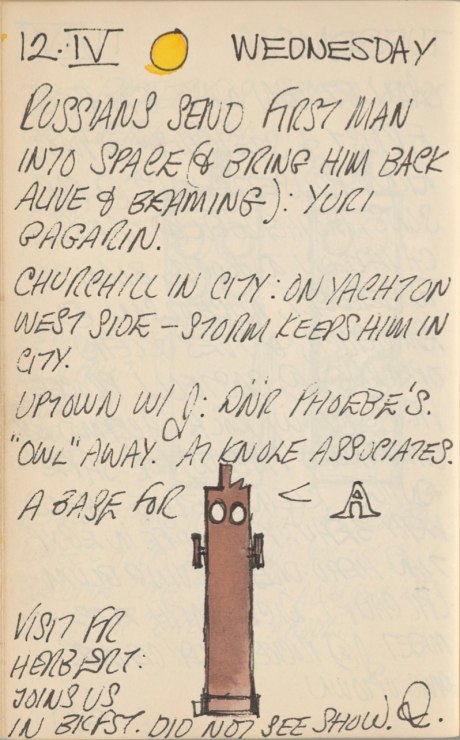 12·IV WEDNESDAY
RUSSIANS SEND FIRST MAN
INTO SPACE (& BRING HIM BACK
ALIVE & BEAMING): YURI
GAGARIN.
CHURCHILL IN CITY: ON YACHT ON
WEST SIDE – STORM KEEPS HIM IN
CITY.
UPTOWN W/ J: DNR PHOEBE'S.
"OWL" AWAY. AT KNOLE ASSOCIATES.
A BASE FOR < A
VISIT FR
HERBERT:
JOINS US
IN BKFST. DID NOT SEE SHOW.